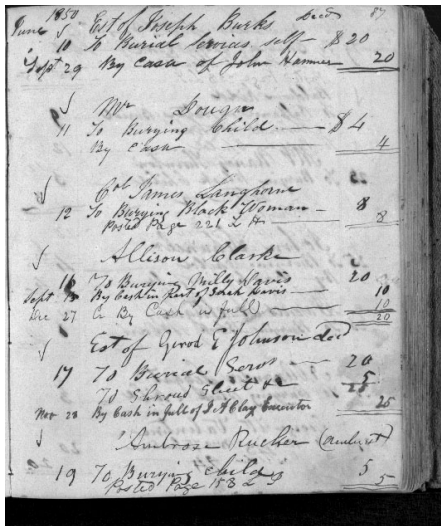 1850 87
June Est of Joseph Burks Decd
10 To Burial Servias self $20
Sept 29 By Cash of John Hanner 20
Mr Dougn
11 To Burying Child $4
By Cash 4
Col James Langhorne
12 To Burying Black Woman 8
Posted Page 221 L H 8
Allison Clarke
16 To Burying Milly Davis 20
Sept By Cash in Part of Davis 10
Dec 27 Cr By Cash in full 10
20
Est of Gerod E Johnson decd
17 To Burial Servs 20
To Shroud Sheet &c 5
25
Nov 28 By Cash in full of Clay Executor 25
Ambrose Rucker (Amherst)
19 To Burying child 5
Posted Page 153 L 5